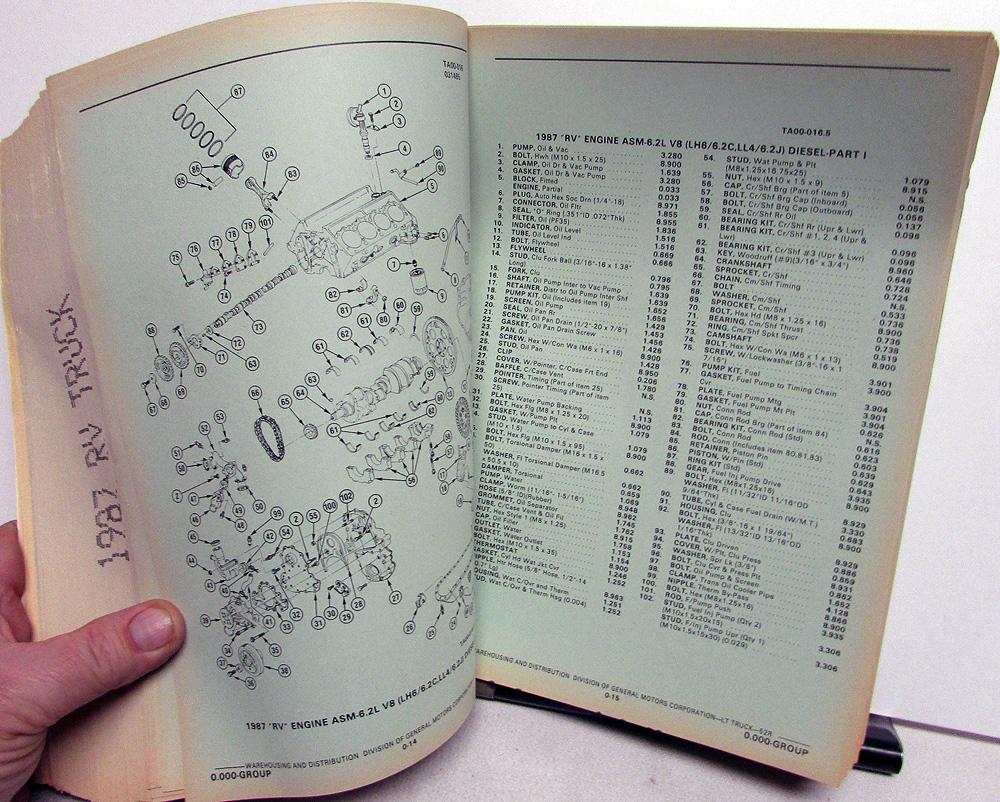 1987 RV TRUCK
TA00-016
031485
1987 "RV" ENGINE ASM-6.2L V8 (LH6/6.2C,LL4/6.2J) DIESEL
WAREHOUSING AND DISTRIBUTION DIVISION OF GENERAL MOTORS CORPORATION
0-14
0.000-GROUP
TA00-016.5
1987 "RV" ENGINE ASM-6.2L V8 (LH6/6.2C,LL4/6.2J) DIESEL-PART I
1. PUMP, Oil & Vac 3.280
2. BOLT, Hwh (M10 x 1.5 x 25) 8.900
3. CLAMP, Oil Dr & Vac Pump 1.639
4. GASKET, Oil Dr & Vac Pump 3.280
5. BLOCK, Fitted 0.033
ENGINE, Partial 0.033
6. PLUG, Auto Hex Soc Drn (1/4"-18) 8.971
7. CONNECTOR, Oil Fltr 1.855
8. SEAL, "O" Ring (.351"ID .072"Thk) 8.955
9. FILTER, Oil (PF35) 1.836
10. INDICATOR, Oil Level 1.516
11. TUBE, Oil Level Ind 1.516
12. BOLT, Flywheel 0.669
13. FLYWHEEL 0.666
14. STUD, Clu Fork Ball (3/16"-16 x 1.38"
Long) 0.796
15. FORK, Clu 0.795
16. SHAFT, Oil Pump Inter to Vac Pump 1.639
17. RETAINER, Distr to Oil Pump Inter Shf 1.639
18. PUMP KIT, Oil (Includes item 19) 1.652
19. SCREEN, Oil Pump 1.656
20. SEAL, Oil Pan Rr 1.429
21. SCREW, Oil Pan Drain (1/2"-20 x 7/8") 1.453
22. GASKET, Oil Pan Drain Screw 1.456
23. PAN, Oil 1.426
24. SCREW, Hex W/Con Wa (M6 x 1 x 16) 8.900
25. STUD, Oil Pan 1.428
26. CLIP 8.950
27. COVER, W/Pointer, C/Case Frt End 0.206
28. BAFFLE, C/Case Vent 1.780
29. POINTER, Timing (Part of item 25) N.S.
30. SCREW, Pointer Timing (Part of item
25) N.S.
31. PLATE, Water Pump Backing 1.113
BOLT, Hex Flg (M8 x 1.25 x 20) 8.900
GASKET, W/Pump Plt 1.079
STUD, Water Pump to Cyl & Case
(M10 x 1.5)
BOLT, Hex Flg (M10 x 1.5 x 95)
BOLT, Torsional Damper (M16 x 1.5 x
50)
WASHER, Fl Torsional Damper (M16.5
x 50.5 x 10) 0.662
DAMPER, Torsional 0.659
PUMP, Water 1.069
CLAMP, Worm (11/16"- 1-5/16") 8.948
HOSE (5/8" ID)(Rubber) 8.962
GROMMET, Oil Separator 1.745
TUBE, C/Case Vent & Oil Fil 1.745
NUT, Hex Style 1 (M8 x 1.25) 8.915
CAP, Oil Filler 1.758
OUTLET, Water 1.153
GASKET, Water Outlet 1.154
BOLT, Hex (M10 x 1.5 x 35) 8.900
THERMOSTAT 1.246
GASKET, Cyl Hd Wat Jkt Cvr 1.252
NIPPLE, Htr Hose (5/8" Hose, 1/2"-14
0.7" Lg) 8.963
HOUSING, Wat C/Ovr and Therm 1.251
STUD, Wat C/Ovr & Therm Hsg (0.004) 1.252
54. STUD, Wat Pump & Plt
(M8x1.25x16.75x25) 1.079
55. NUT, Hex (M10 x 1.5 x 9) 8.915
56. CAP, Cr/Shf Brg (Part of item 5) N.S.
57. BOLT, Cr/Shf Brg Cap (Inboard) 0.056
58. BOLT, Cr/Shf Brg Cap (Outboard) 0.056
59. SEAL, Cr/Shf Rr Oil 0.137
60. BEARING KIT, Cr/Shf Rr (Upr & Lwr) 0.096
61. BEARING KIT, Cr/Shf #1, 2, 4 (Upr &
Lwr) 0.096
62. BEARING KIT, Cr/Shf #3 (Upr & Lwr) 0.096
63. KEY, Woodruff (#9)(3/16" x 3/4") 8.960
64. CRANKSHAFT 0.646
65. SPROCKET, Cr/Shf 0.728
66. CHAIN, Cm/Shf Timing 0.724
67. BOLT N.S.
68. WASHER, Cm/Shf 0.533
69. SPROCKET, Cm/Shf 0.736
70. BOLT, Hex Hd (M8 x 1.25 x 16) 8.900
71. BEARING, Cm/Shf Thrust 0.736
72. RING, Cm/Shf Spkt Spcr 0.738
73. CAMSHAFT 0.519
74. BOLT, Hex W/Con Wa (M6 x 1 x 13) 8.900
75. SCREW, W/Lockwasher (3/8"-16 x 1
7/16")
76. PUMP KIT, Fuel 3.901
77. GASKET, Fuel Pump to Timing Chain
Cvr 3.904
78. PLATE, Fuel Pump Mtg 3.901
79. GASKET, Fuel Pump Mt Plt 3.904
80. NUT, Conn Rod 0.626
81. CAP, Conn Rod Brg (Part of item 84) N.S.
82. BEARING KIT, Conn Rod (Std) 0.616
83. BOLT, Conn Rod 0.623
84. ROD, Conn (Includes item 80,81,83) 0.603
85. RETAINER, Piston Pin 0.639
86. PISTON, W/Pin (Std) 0.629
87. RING KIT (Std) 0.643
88. GEAR, Fuel Inj Pump Drive 3.935
89. BOLT, Hex (M8x1.25x16) 8.900
WASHER, Fl (11/32"ID 11/16"OD
9/64"Thk) 8.929
90. TUBE, Cyl & Case Fuel Drain (W/M.T.) 3.330
91. HOUSING, Clu 0.683
92. BOLT, Hex (3/8"-16 x 1 19/64") 8.900
WASHER, Fl (13/32"ID 13/16"OD
1/16"Thk) 8.929
93. PLATE, Clu Driven 0.886
94. COVER, W/Plt, Clu Press 0.859
95. WASHER, Spr Lk (3/8") 8.931
96. BOLT, Clu Cvr & Press Plt 0.862
97. BOLT, Oil Pump & Screen 1.652
98. CLAMP, Trans Oil Cooler Pipe 4.128
99. NIPPLE, Therm By-Pass 8.866
100. BOLT, Hex (M8x1.25x16) 8.900
101. ROD, F/Pump Push 3.935
102. STUD, Fuel Inj Pump (Qty 2)
(M10x1.5x20x15) 3.306
STUD, F/Inj Pump Upr (Qty 1)
(M10x1.5x15x30) (0.029) 3.306
WAREHOUSING AND DISTRIBUTION DIVISION OF GENERAL MOTORS CORPORATION—LT TRUCK—52R
0-15
0.000-GROUP